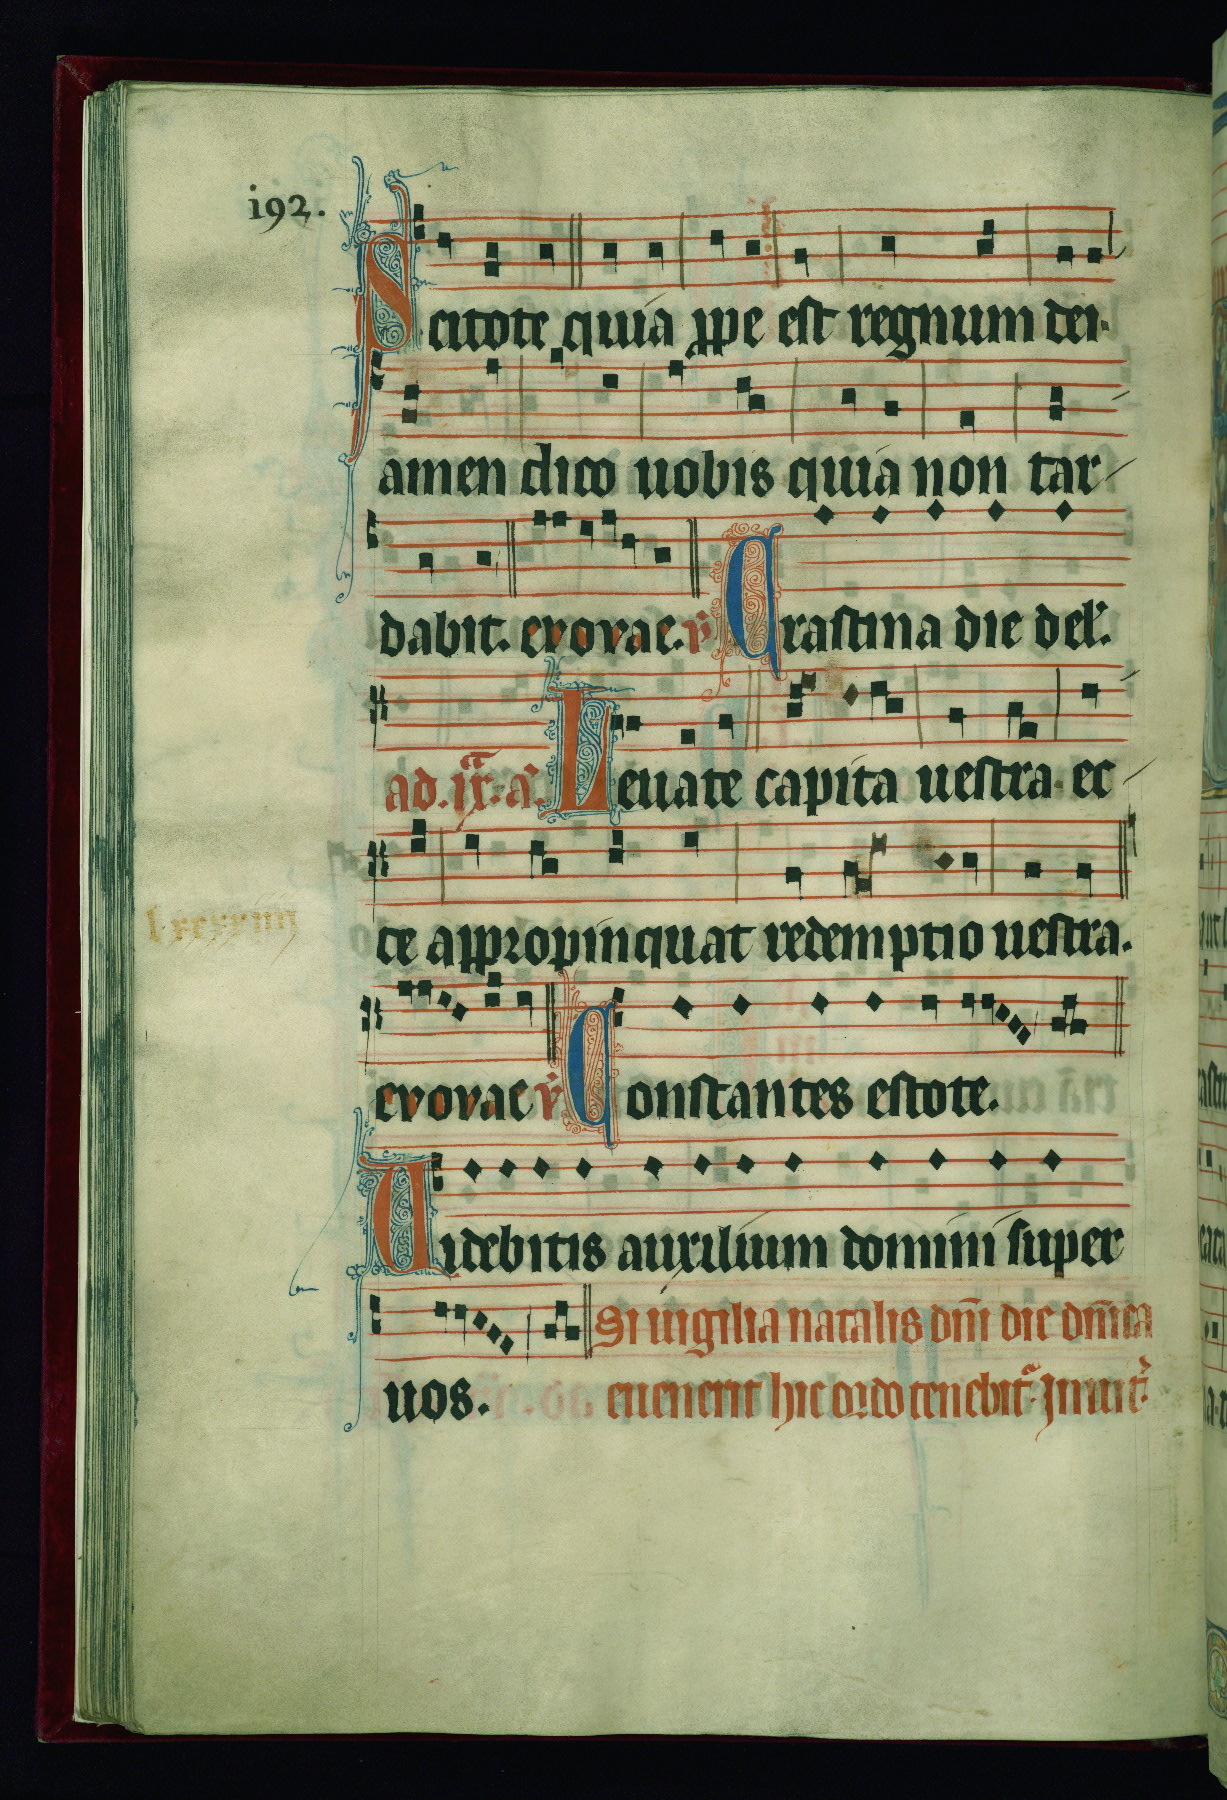 192.
Scitote quia ꝓpe est regnum dei.
amen dico uobis quia non tar
dabit. evovae. v̾ Crastina die del'.
ad .ix. a. Leuate capita uestra ec
ce appropinquat redemptio uestra.
evovae v̾ Constantes estote.
Uidebitis auxilium domini super
Si uigilia natalis dn̄i die dn̄ica
uos. euenerit hic ordo tenebit᷑. Inuit᷑.